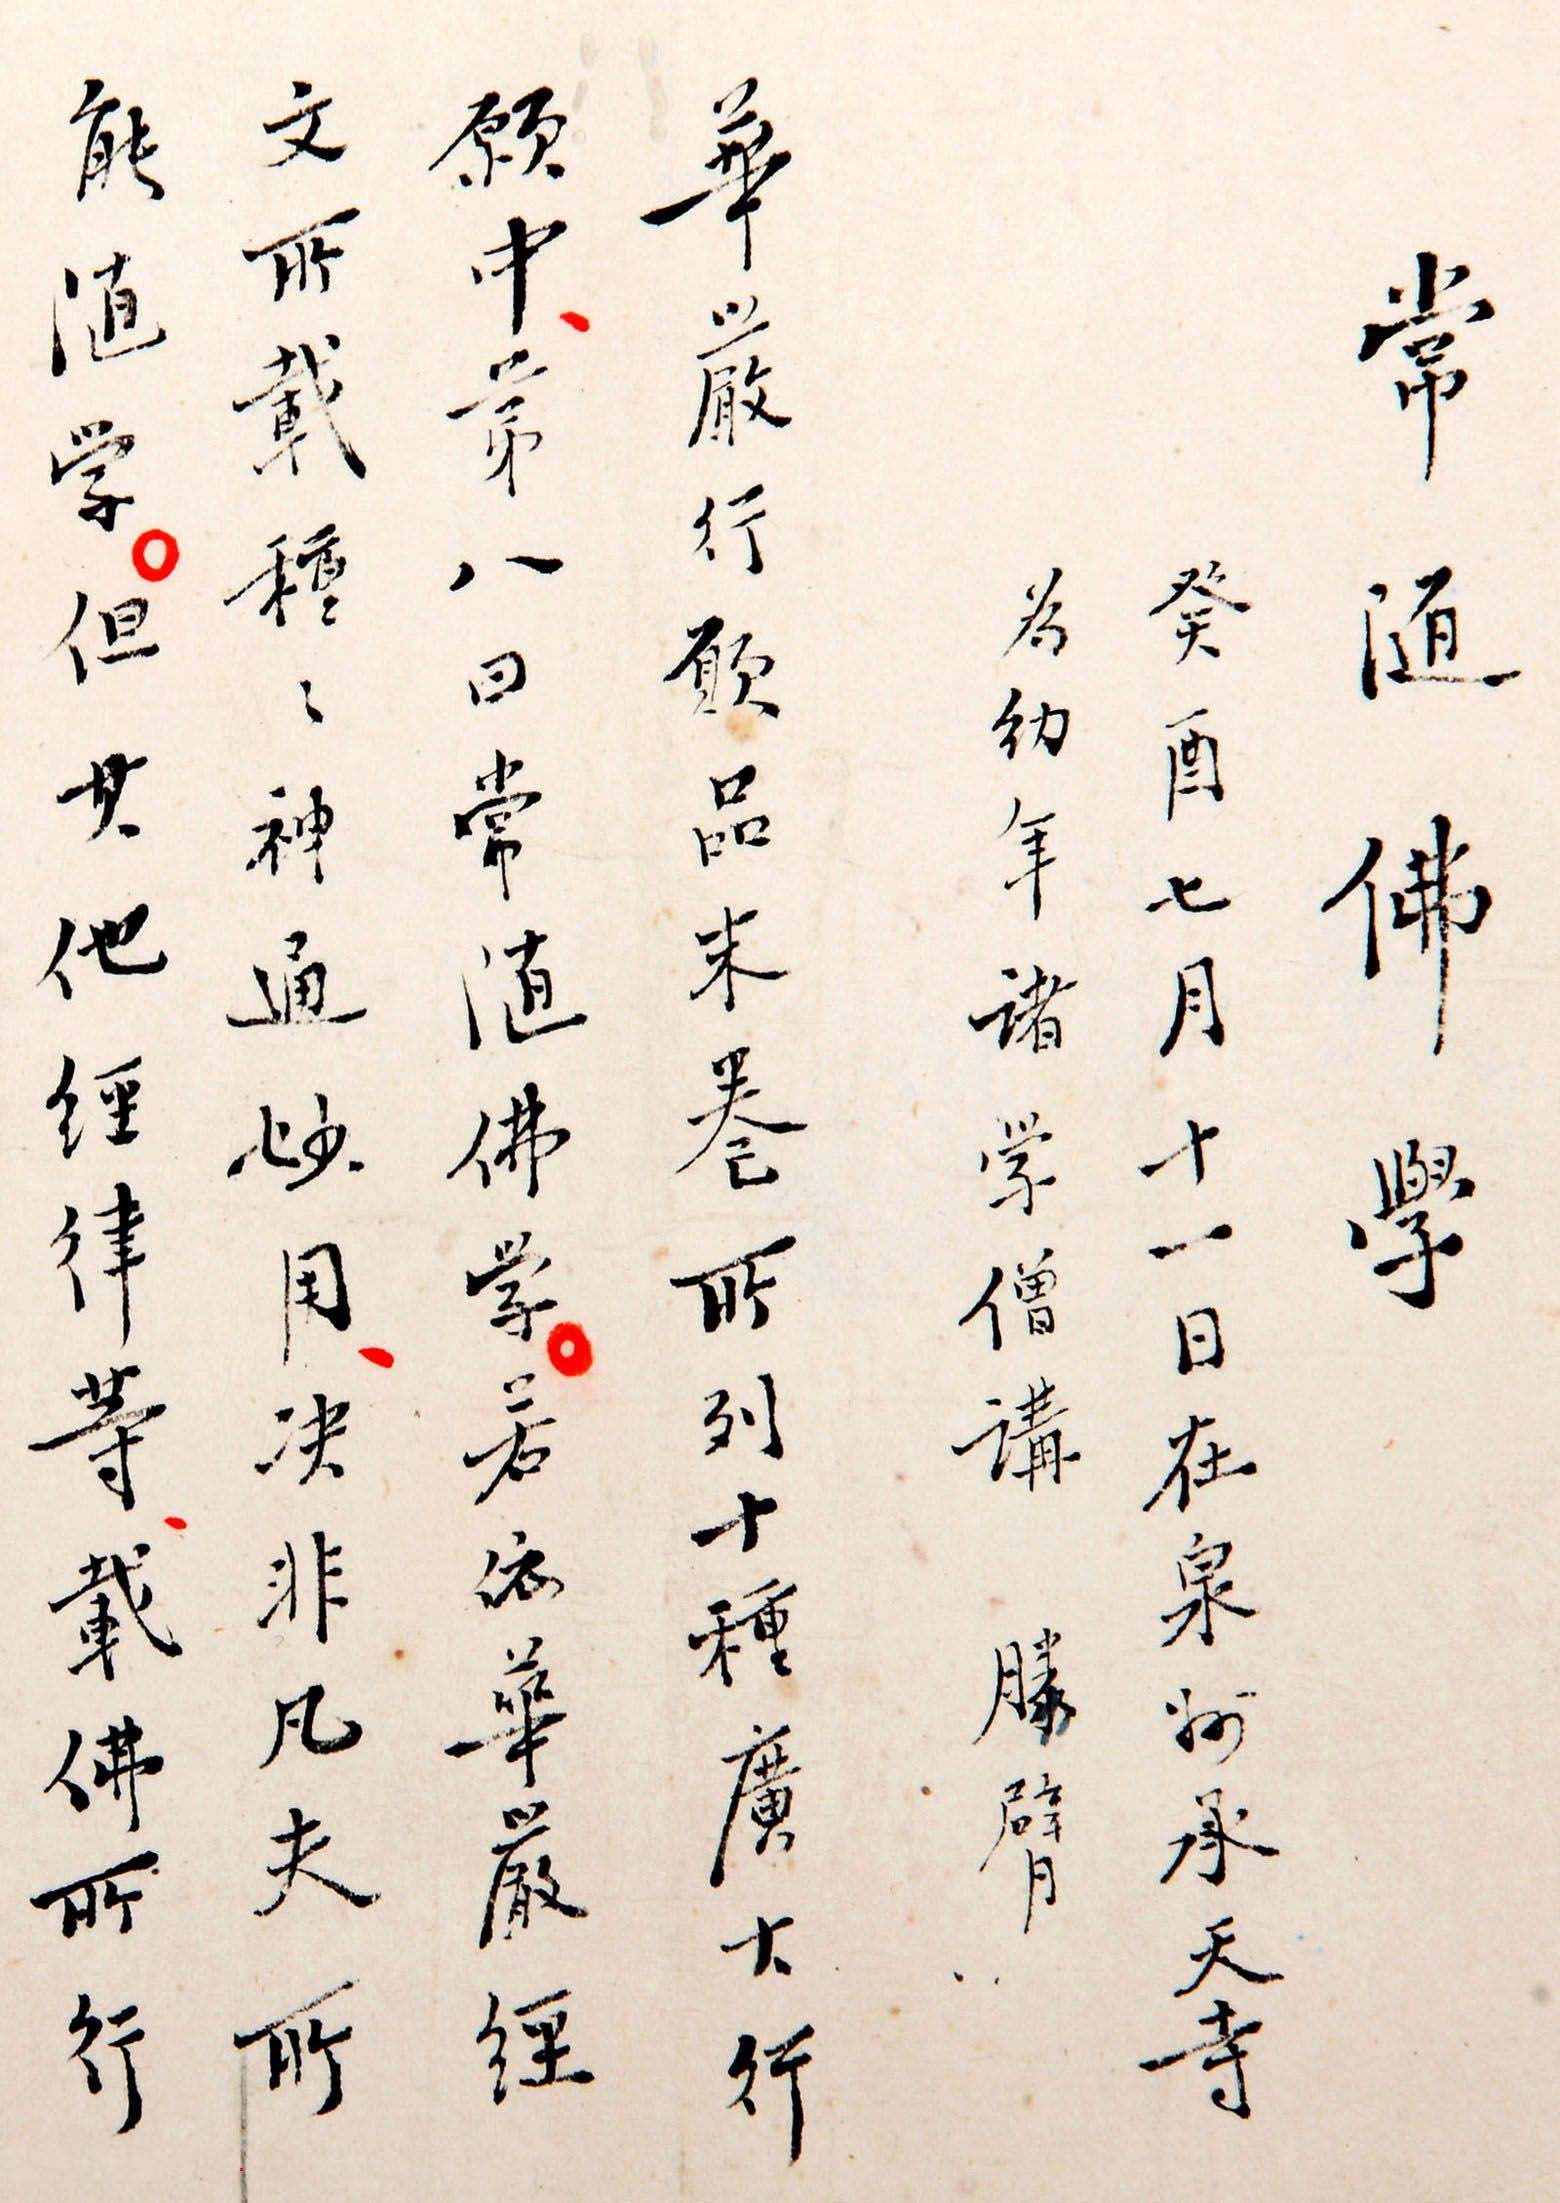 常随佛學
癸酉七月十一日在泉州承天寺
为幼年诸学僧講　勝臂
華嚴行願品末卷所列十種廣大行
願中、第八曰常随佛学。若依華嚴經
文所載種々神通妙用、决非凡夫所
能随学。但其他經律等、載佛所行